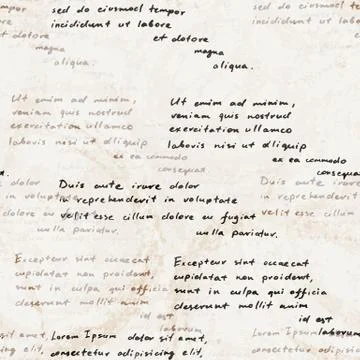 sed do eiusmod tempor
incididunt ut labore
et dolore
magna
aliqua.
sed do
incididunt
tempor
labore
et dolore
magna
aliqua.
Ut enim ad minim,
veniam quis nostrud
exercitation ullamco
laboris nisi ut aliquip
ex ea commodo
consequat
Ut enim ad minim,
veniam quis nostrud
exercitation ullamco
laboris nisi ut aliquip
ex ea commodo
consequat
dolor
in voluptate
dolore eu
nulla pariatur.
Duis aute irure dolor
in reprehenderit in voluptate
velit esse cillum dolore eu fugiat
nulla pariatur.
Duis aute irure
in reprehenderit
velit esse cillum
Excepteur sint occaecat
cupidatat non proident,
sunt in culpa qui officia
deserunt mollit anim
id est
laborum
Excepteur sint occaecat
cupidatat non proident,
sunt in culpa qui officia
deserunt mollit anim
id est
laborum
sit amet,
elit,
Lorem Ipsum dolor sit amet,
consectetur adipisicing elit,
Lorem Ipsum
consectetur